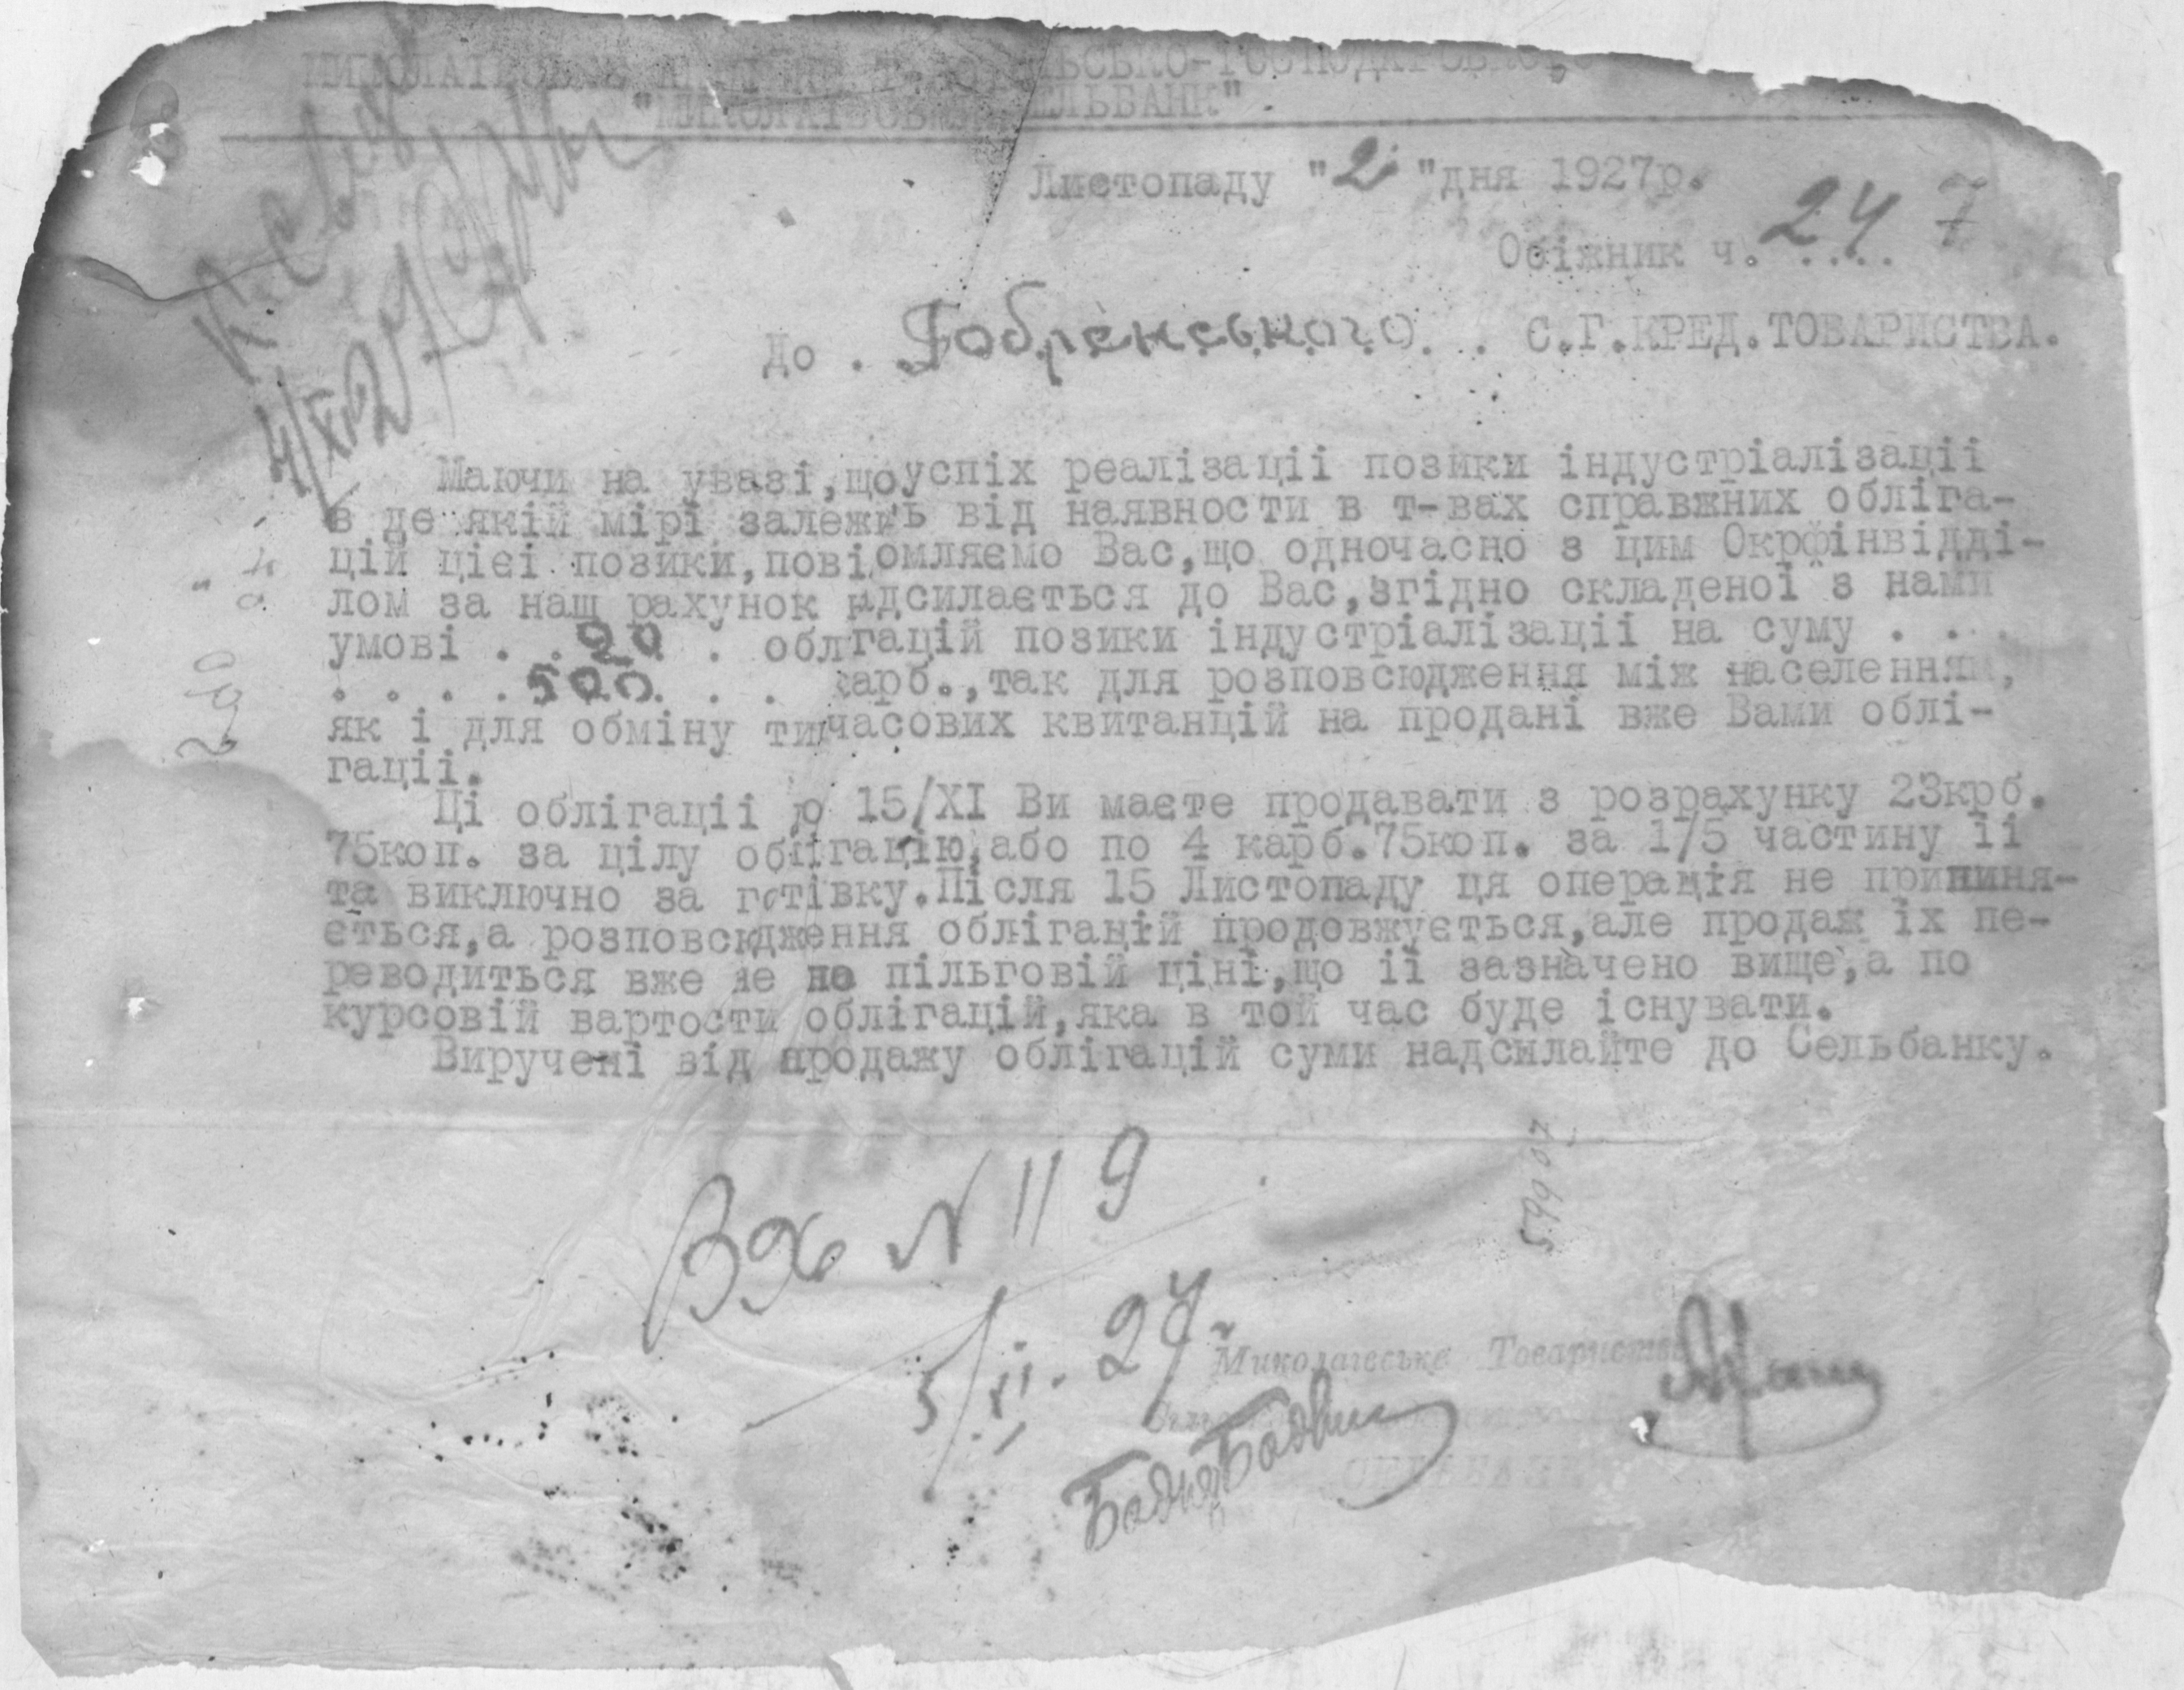 ЛЬСЬКО-ГОСПОДАРСЬКОГО
"МИКОЛАЇВСЬКИЙ СЕЛЬБАНК".
Листопаду "2" дня 1927р.
7
Обіжник ч. 24 ....
До . Добренського . . С.Г.КРЕД.ТОВАРИСТВА.
4/XI-27
Маючи на увазі,що успіх реалізаціі позики індустріалізаціі
в де якій мірі залежить від наявности в т-вах справжних обліга-
цій цієі позики,повідомляємо Вас,що одночасно з цим Окрфінвідді-
лом за наш рахунок надсилається до Вас,згідно складеноі з нами
умові . . 20 . . облігацій позики індустріалізаціі на суму . . .
. . . . 500. . . карб.,так для розповсюдження між населенням,
як і для обміну тимчасових квитанцій на продані вже Вами облі-
гаціі.
Ці облігаціі до 15/XI Ви маєте продавати з розрахунку 23крб.
75коп. за цілу облігацію,або по 4 карб.75коп. за 1/5 частину іі
та виключно за готівку.Після 15 Листопаду ця операція не припиня-
ється,а розповсюдження облігацій продовжується,але продаж їх пе-
реводиться вже не по пільговій ціні,що іі зазначено вище,а по
курсовій вартости облігацій,яка в той час буде існувати.
Виручені від продажу облігацій суми надсилайте до Сельбанку.
Вх № 119
5/XI. 27.
59907
Миколаївське Товариство